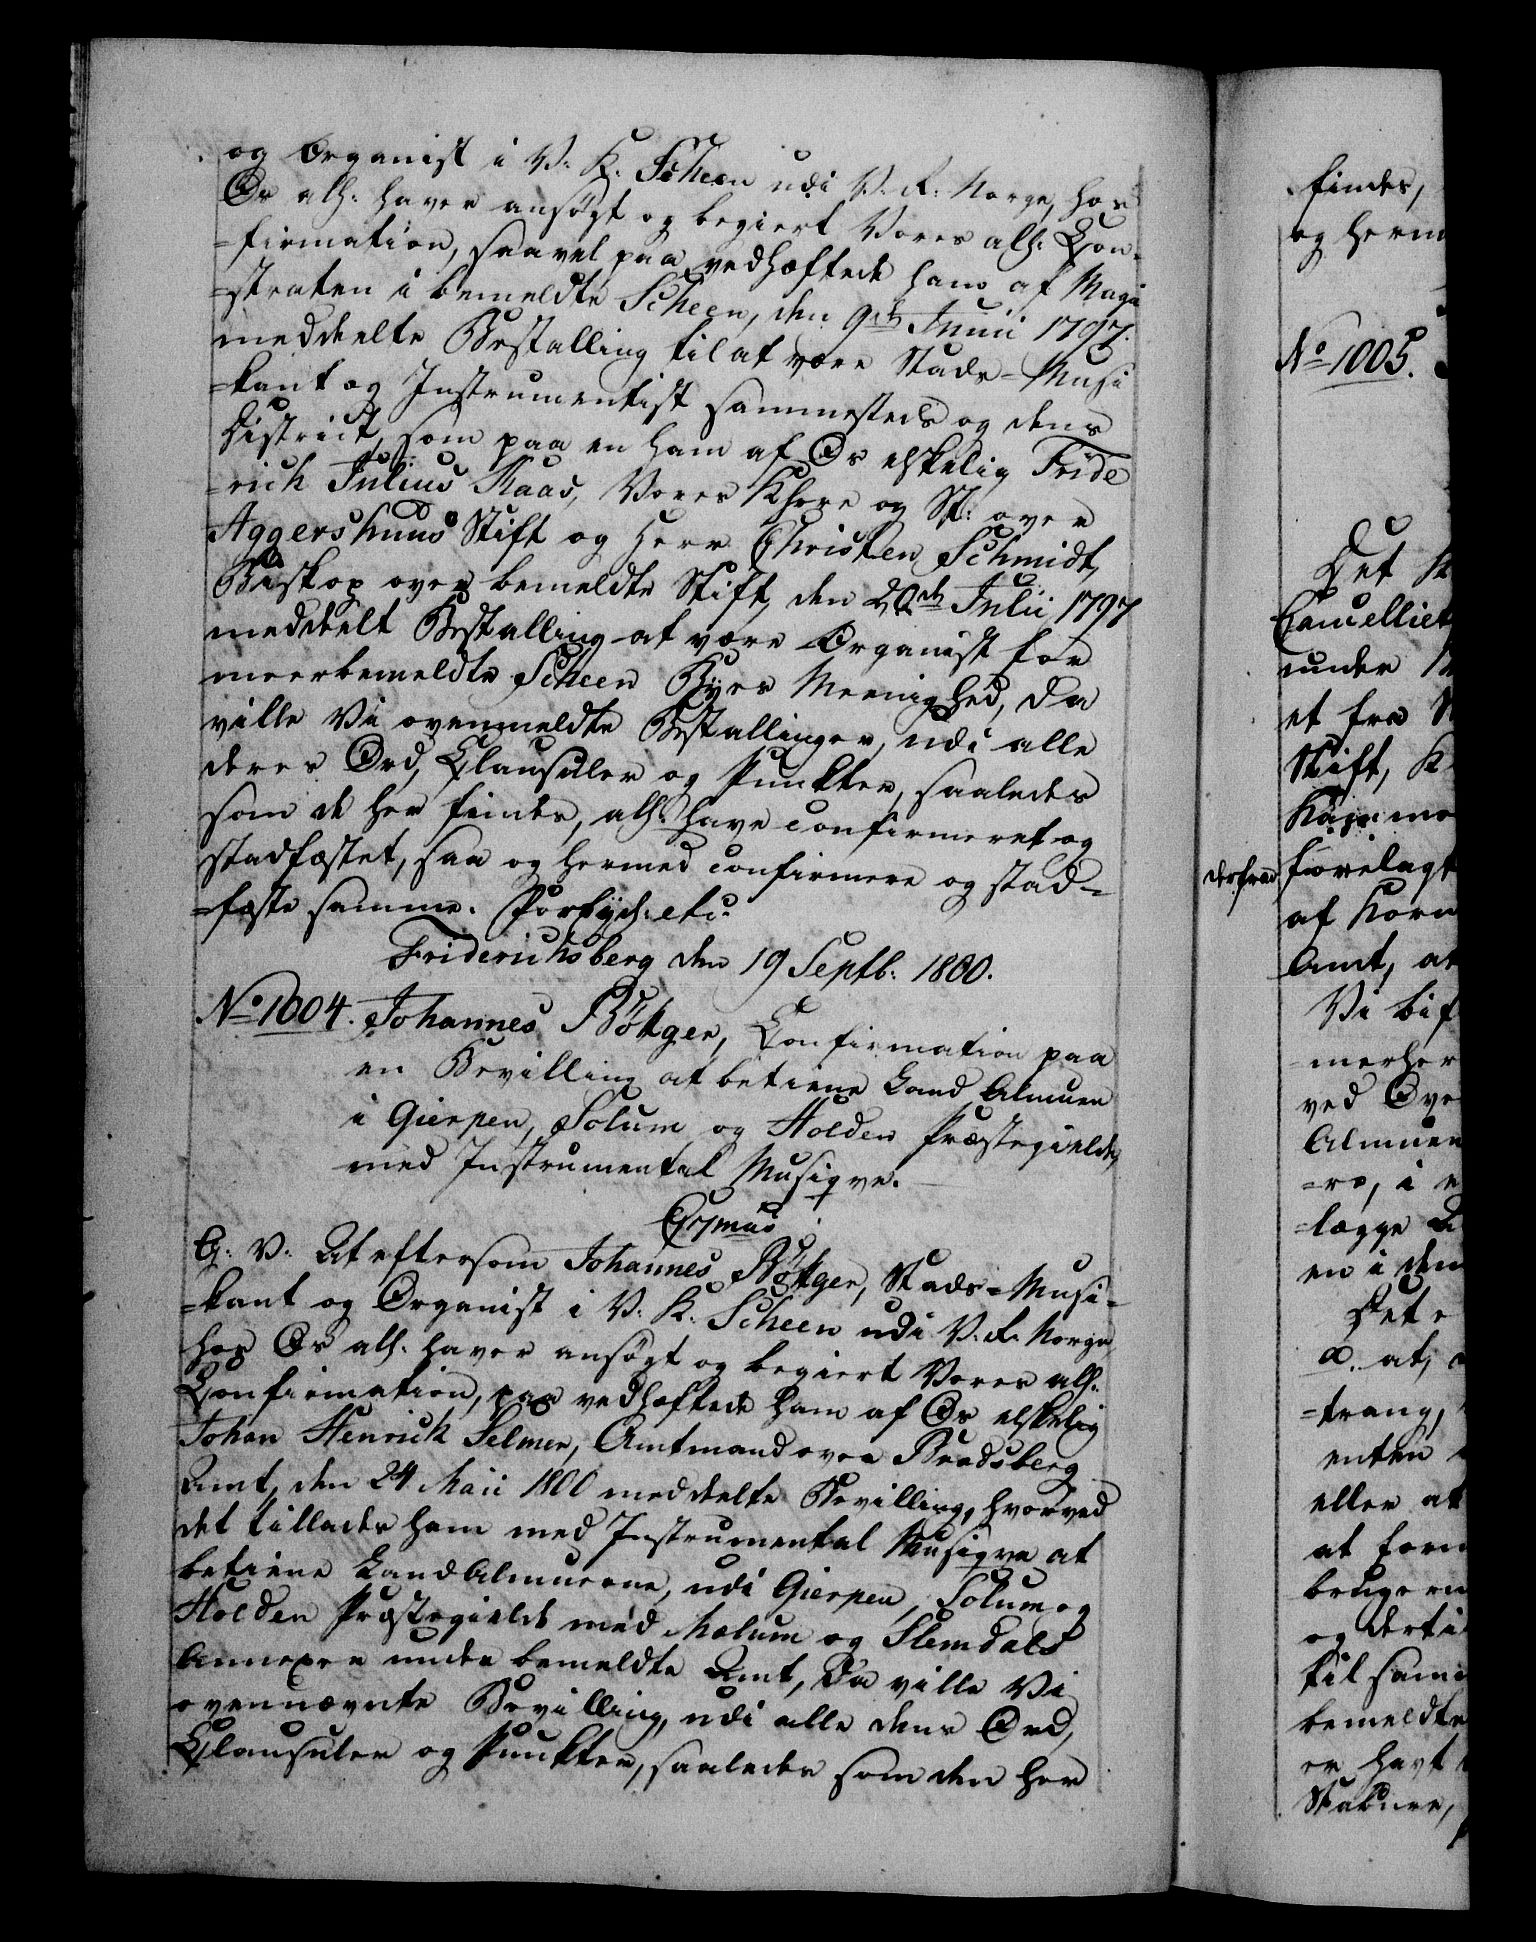 og Organist i V: K. Scheen udi V: R: Norge, hos
Os alh: haver ansøgt og begiert Vores alh: Con-
=firmation, saavel paa vedhæftede ham af Magi
=straten i bemeldte Scheen, den 9de Junii 1797.
meddeelte Bestalling til at være Stads-Musi
=kant og Instrumentist sammesteds og dens
District, som paa en ham af Os elskelig Fride
=rich Julius Kaas, Vores Khere og St: over
Aggershuus Stift og Herr Christen Schmidt,
Biskop over bemeldte Stift, den 20de Julii 1797
meddeelt Bestalling at være Organist for
meerbemeldte Scheen Byes Meenighed, da
ville Vi ovenmeldte Bestallinger, udi alle
deres Ord, Clausuler og Puncter, saaledes
som de her findes, alh: have confirmeret og
stadfæstet, saa og hermed confirmere og stad-
=fæste samme. Forbyd: etc:
Friderichsberg den 19 Septb: 1800.
No 1004. Johannes Bötger, Confirmation paa
en Bevilling at betiene Land Almuen
i Gierpen, Solum og Holden Præstegielde,
med Instrumental Musiqve.
C7mus
G: V: At eftersom Johannes Bötger, Stads-Musi-
=kant og Organist i V: K. Scheen udi V: R: Norge
hos Os alh: haver ansøgt og begiert Vores alh:
Confirmation, paa vedhæftede ham af Os elskelig
Johan Henrick Selmer, Amtmand over Bradsberg
Amt, den 24 Maii 1800 meddeelte Bevilling, hvorved
det tillades ham med Instrumental Musiqve at
betiene LandAlmuerne, udi Gierpen, Solum og
Holden Præstegield med Mælum og Slemdals
Annexer under bemeldte Amt, da ville Vi
ovennævnte Bevilling, udi alle dens Ord,
Clausuler og Puncter, saaledes som den her
findes,
og herm
No 1005.
Det
Cancelliet
under
et fra
Stift, K
Kammer
derfra forelagt
af Korn
Amt, at
Vi bif
merher
ved Ove
Almuen
=re, i
=lægge
en i den
Det
a. at,
=trang,
enten
eller at
at forn
bruge en
og dertil
til sam
bemeldte
er havt